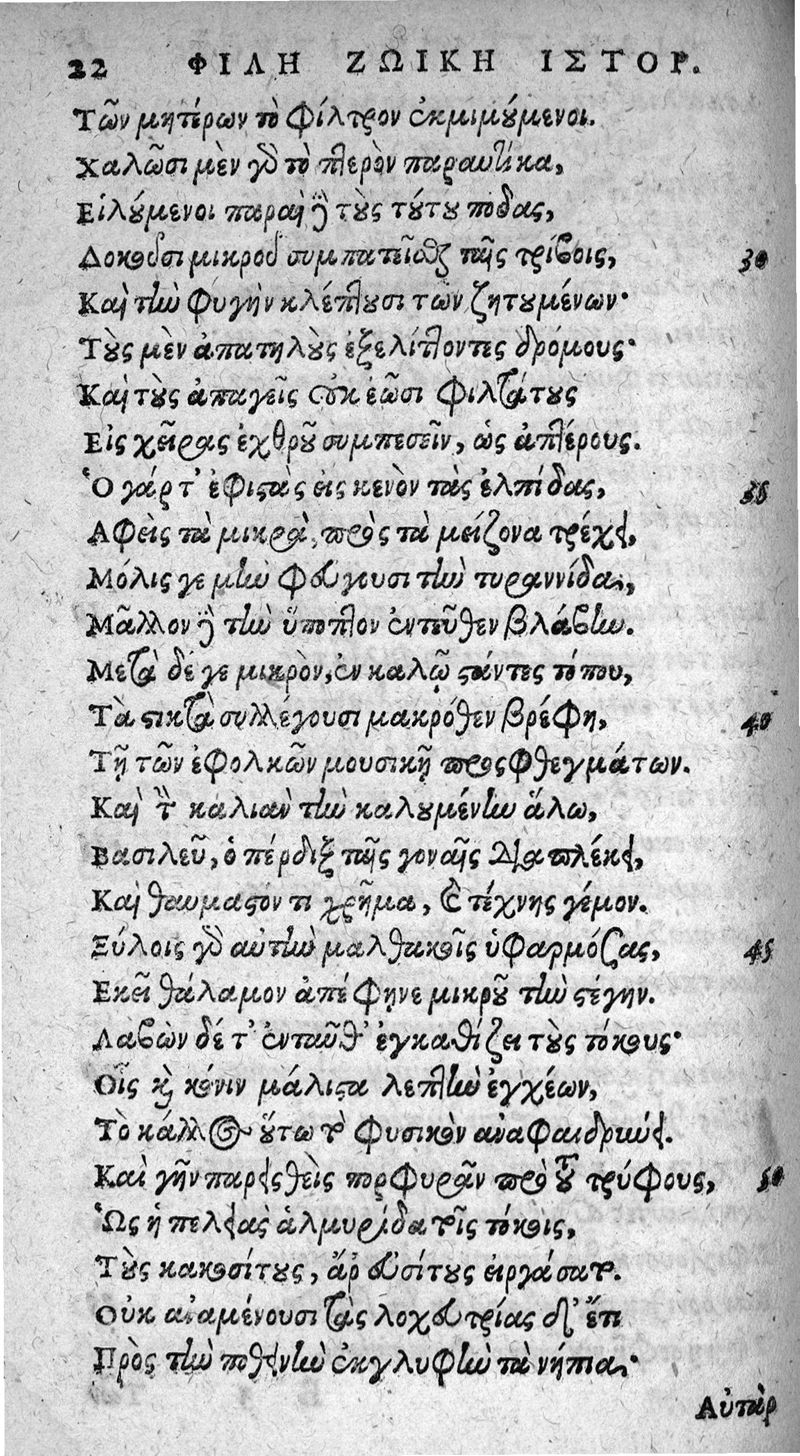 22 ΦΙΛΗ ΖΩΙΚΗ ΙΣΤΟΡ.
Τῶν μητέρων τὸ φίλτρον ἐκμιμούμενοι.
Χαλῶσι μὲν γὸ τὸ πτερὸν παραυτίκα,
Εἱλούμενοι παραὶ ἢ τοὺς τούτου ποδας,
Δοκοῦσι μικροῦ συμπατεῖσθαι ταῖς τρίβοις, 30
Καὶ τὴν φυγὴν κλέπτουσι των ζητουμένων·
Τοὺς μὲν ἀπατηλοὺς ἐξελίττοντες δρόμους·
Καὶ τοὺς ἀπαγεῖς οὐκ ἐῶσι φιλτάτους
Εἰς χεῖρας ἐχθροῦ συμπεσεῖν, ὡς ἀπτέρους.
Ὁ γάρ τ' ἐφιστὰς εἰς κενὸν τὰς ἐλπίδας, 35
Αφεὶς τὰ μικρὰ, πρὸς τὰ μείζονα τρέχει,
Μόλις γε μὴν φεύγουσι τὴν τυραννίδα,
Μᾶλλον ἢ τὴν ὕποπτον ἐντεῦθεν βλάβην.
Μετὰ δέ γε μικρὸν, ἐν καλῷ στάντες τόπου,
Τὰ στικτὰ συλλέγουσι μακρόθεν βρέφη, 40
Τῇ τῶν ἐφολκῶν μουσικῇ προσφθεγμάτων.
Καὶ τὴν καλιὰν τὴν καλουμένην ἅλω,
Βασιλεῦ, ὁ πέρδιξ ταῖς γοναῖς διαπλέκει,
Καὶ θαυμαστόν τι χρῆμα, καὶ τέχνης γέμον.
Ξύλοις γὸ αὐτὴν μαλθακοῖς ὑφαρμόζας, 45
Εκεῖ θάλαμον ἀπέφηνε μικροῦ τὴν στέγην.
Λαβὼν δέ τ' ἐνταῦθ' ἐγκαθίζει τοὺς τόκους·
Οἷς καὶ κόνιν μάλιστα λεπτὴν ἐγχέων,
Τὸ κάλλος οὕτω τὸ φυσικὸν αναφαιδρύνει.
Καὶ γῆν παρεισθεὶς πορφυρᾶν πρὸ τοῦ τρύφους, 50
Ὡς ἡ πελειὰς ἁλμυρίδα τοῖς τόκοις,
Τοὺς κακοσίτους, ἄρ' εὐσίτους εἰργάσατο.
Οὐκ αναμένουσι τὰς λοχευτρίας δ' ἔτι
Πρὸς τὴν ποθεινὴν ἐκγλυφὴν τὰ νήπια·
Αὐτὰρ